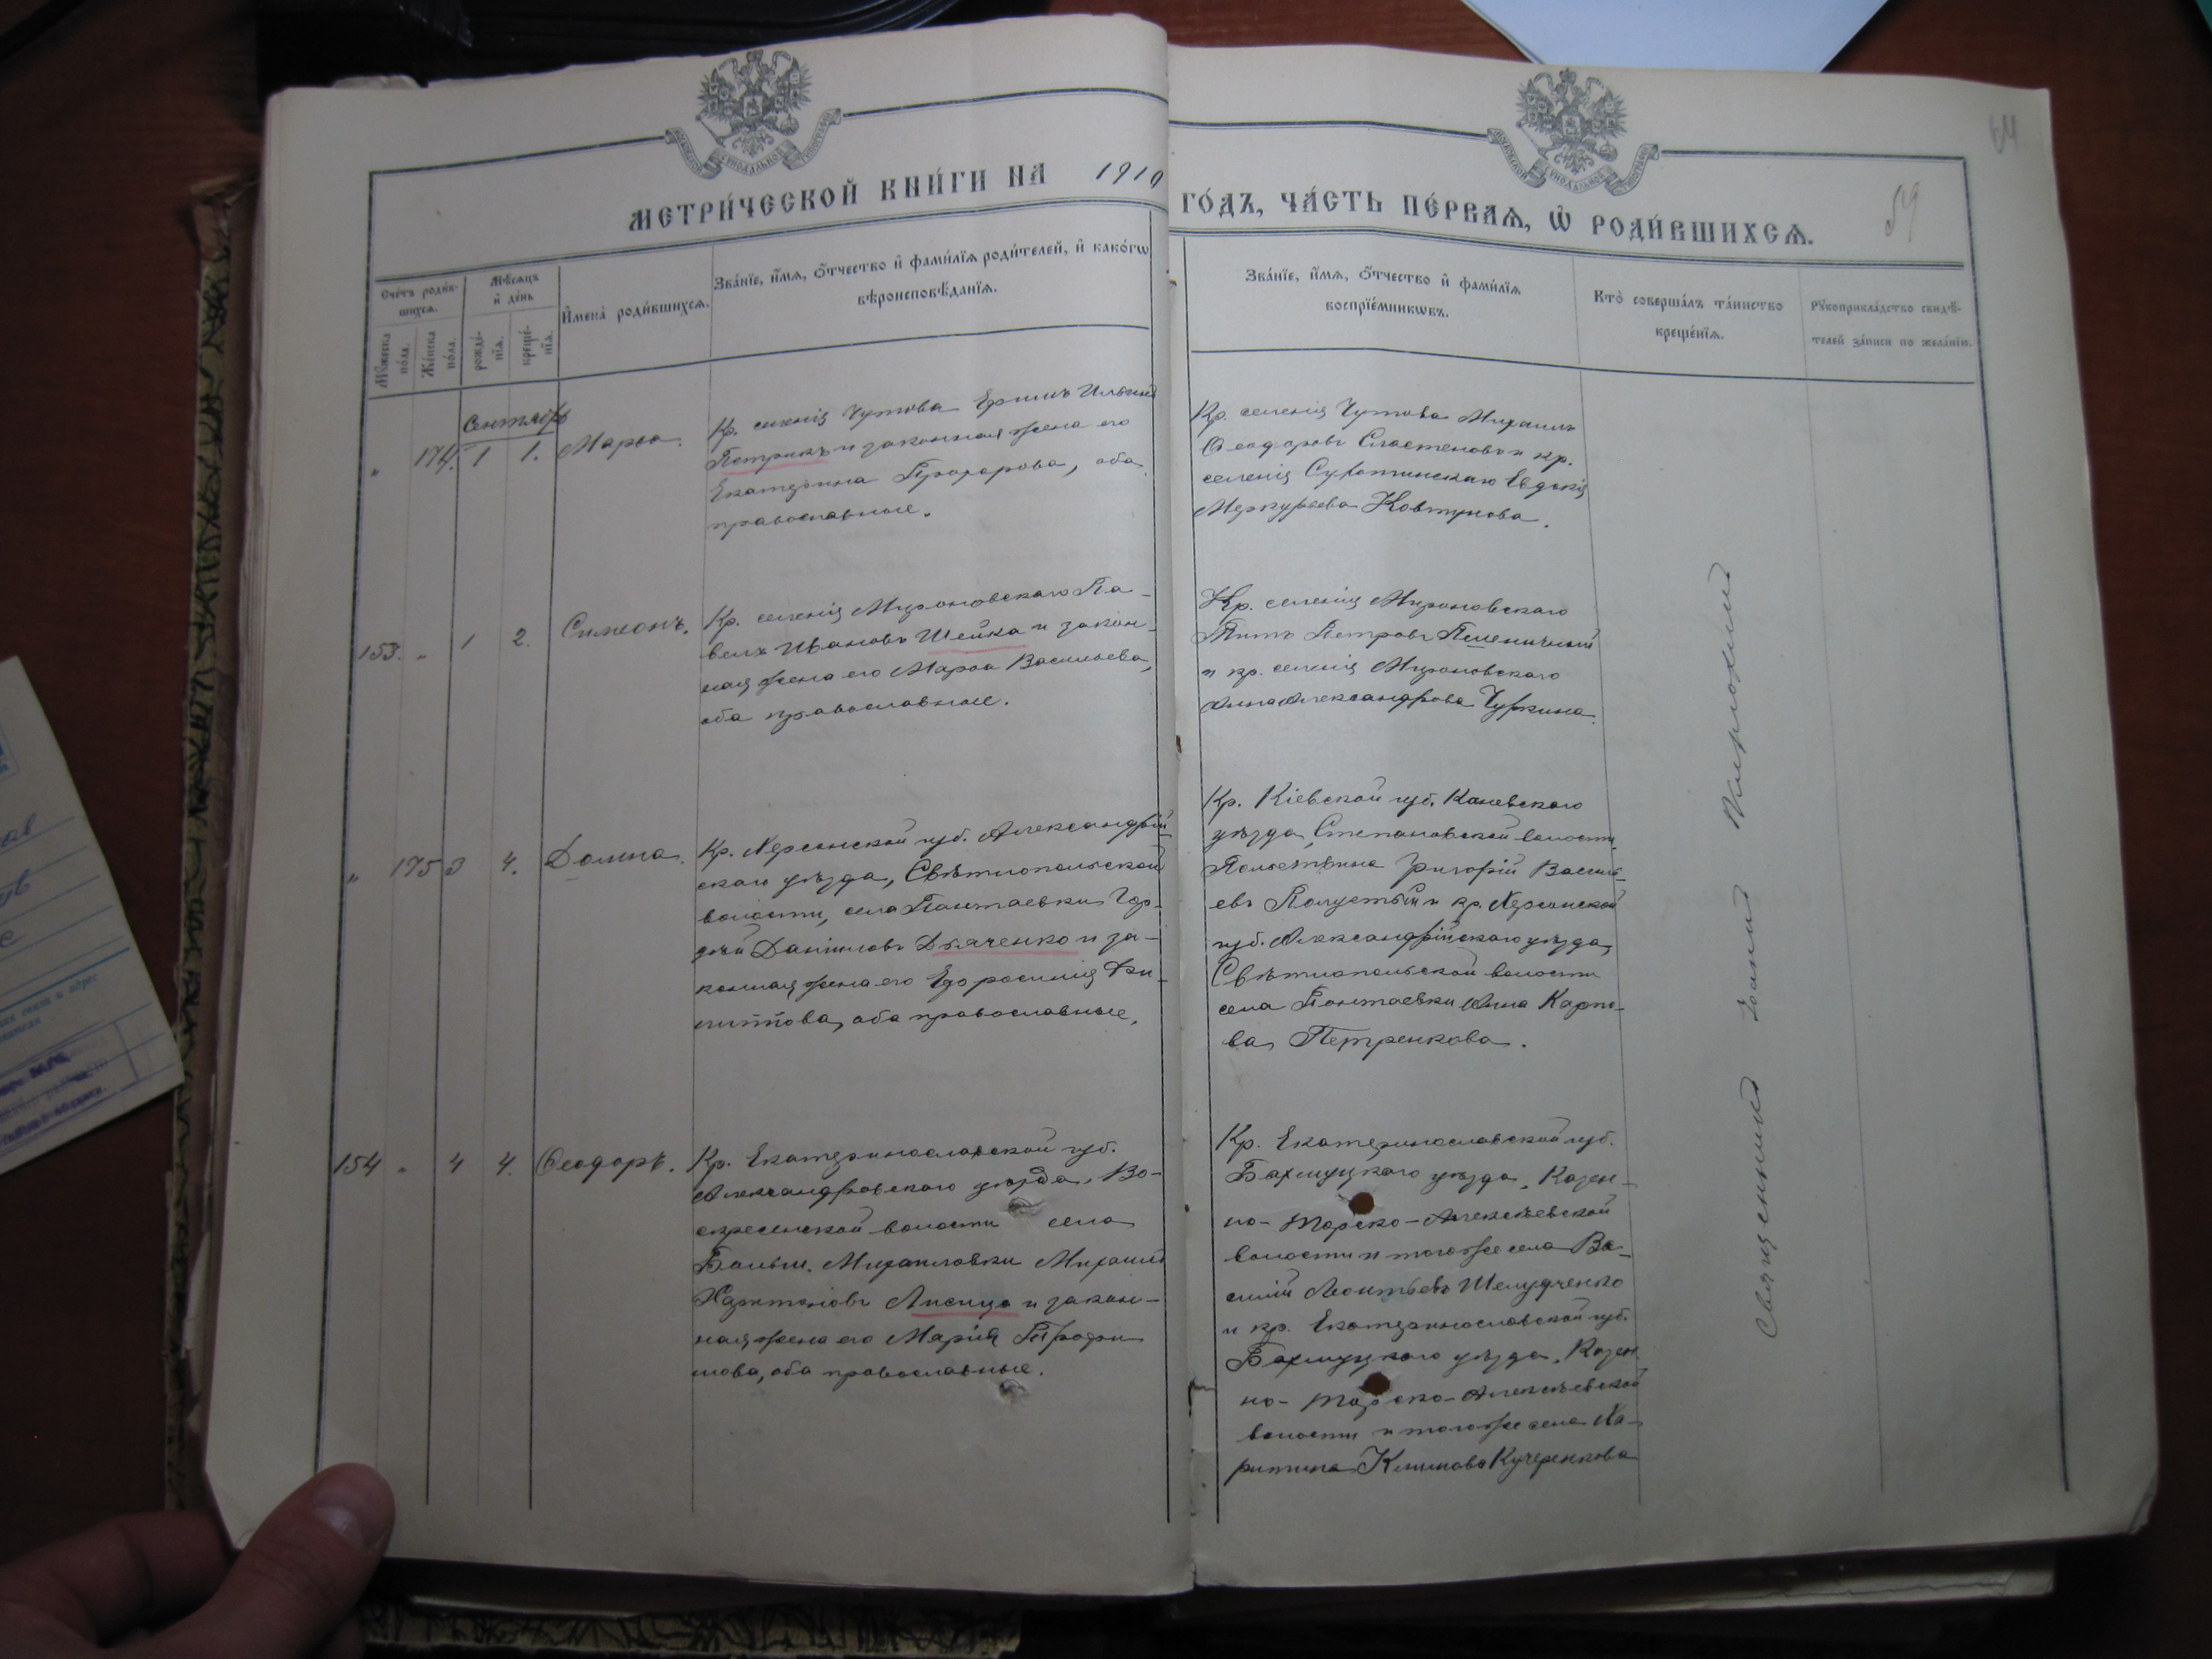 МЕТРИ́ЧЕСКОЙ КНИ́ГИ НА 1910
ГО́ДЪ, ЧА́СТЬ ПЕ́РВАѦ, Ѡ҆ РОДИ́ВШИХСѦ.
64
59
Сче́тъ роди́в-
шихсѧ.
Мꙋ́жеска по́ла.
Же́нска по́ла.
Мѣ́сѧцъ
и҆ де́нь
рожде́-
нїѧ.
креще́-
нїѧ.
И҆мена̀ роди́вшихсѧ.
Зва́нїе, и҆́мѧ, ѻ҆́тчество и҆ фами́лїѧ роди́телей, и҆ како́гѡ
вѣроисповѣ́данїѧ.
Зва́нїе, и҆́мѧ, ѻ҆́тчество и҆ фами́лїѧ
воспрїе́мникѡвъ.
Кто̀ соверша́лъ та́инство
креще́нїѧ.
Рꙋкоприкла́дство свидѣ́-
телей за́писи по жела́нїю.
Сентябрь
" 174. 1 1. Марѳа.
Кр. селенія Чутова Ефимъ Ильинъ
Петрикъ и законная жена его
Екатерина Прохорова, оба
православные.
Кр. селенія Чутова Михаилъ
Ѳеодоровъ Сластеновъ и кр.
селенія Евдокія
Меркурьева Ковтунова.
153. " 1 2. Симеонъ.
Кр. селенія Мироновскаго Па-
велъ Ивановъ Шейка и закон-
ная жена его Марѳа Васильева,
оба православные.
Кр. селенія Мироновскаго
Титъ Петровъ Пшеничный
и кр. селенія Мироновскаго
Анна Александрова Чуркина.
" 175 3 4. Домна.
Кр. Херсонской губ. Александрій
скаго уѣзда, Свѣтлопольской
волости, села Пантаевки Гор-
дѣй Даниловъ Дьяченко и за-
конная жена его Ефросинія Фи-
липпова, оба православные.
Кр. Кіевской губ. Каневскаго
уѣзда, Степановской волости
Григорій Василь-
евъ и кр. Херсонской
губ. Александрійскаго уѣзда,
Свѣтлопольской волости
села Пантаевки Анна Карпо-
ва Петренкова.
154 " 4 4. Ѳеодоръ.
Кр. Екатеринославской губ.
Александровскаго уѣзда, Во-
скресенской волости села
Больш. Михайловки Михаилъ
Харитоновъ Лисица и закон-
ная жена его Марія Трофи
мова, оба православные.
Кр. Екатеринославской губ.
Бахмутскаго уѣзда, Казен-
но-Торско-Алексѣевской
волости и тогоже села Ва-
силій Леонтьевъ Шелудченко
и кр. Екатеринославской губ.
Бахмутскаго уѣзда, Казен
но-Торско-Алексѣевской
волости и тогоже села Ха-
ритина Климова Кучеренкова
Священникъ Іоаннъ